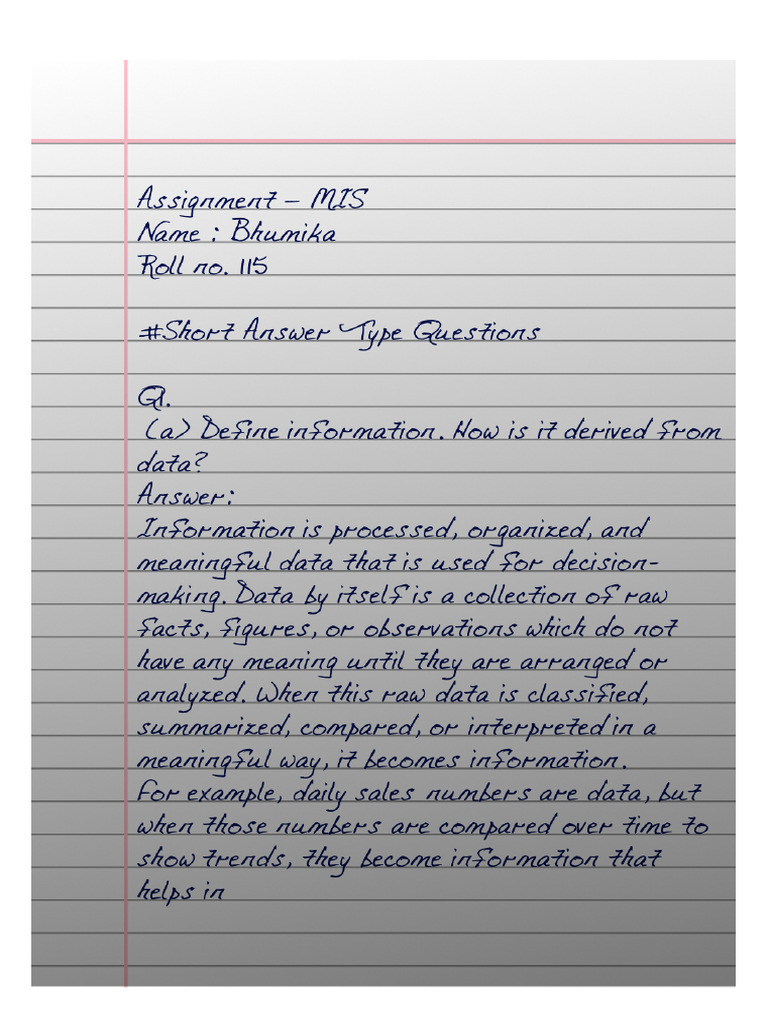 Assignment – MIS
Name : Bhumika
Roll no. 115
#Short Answer Type Questions
Q1.
(a) Define information. How is it derived from
data?
Answer:
Information is processed, organized, and
meaningful data that is used for decision-
making. Data by itself is a collection of raw
facts, figures, or observations which do not
have any meaning until they are arranged or
analyzed. When this raw data is classified,
summarized, compared, or interpreted in a
meaningful way, it becomes information.
For example, daily sales numbers are data, but
when those numbers are compared over time to
show trends, they become information that
helps in